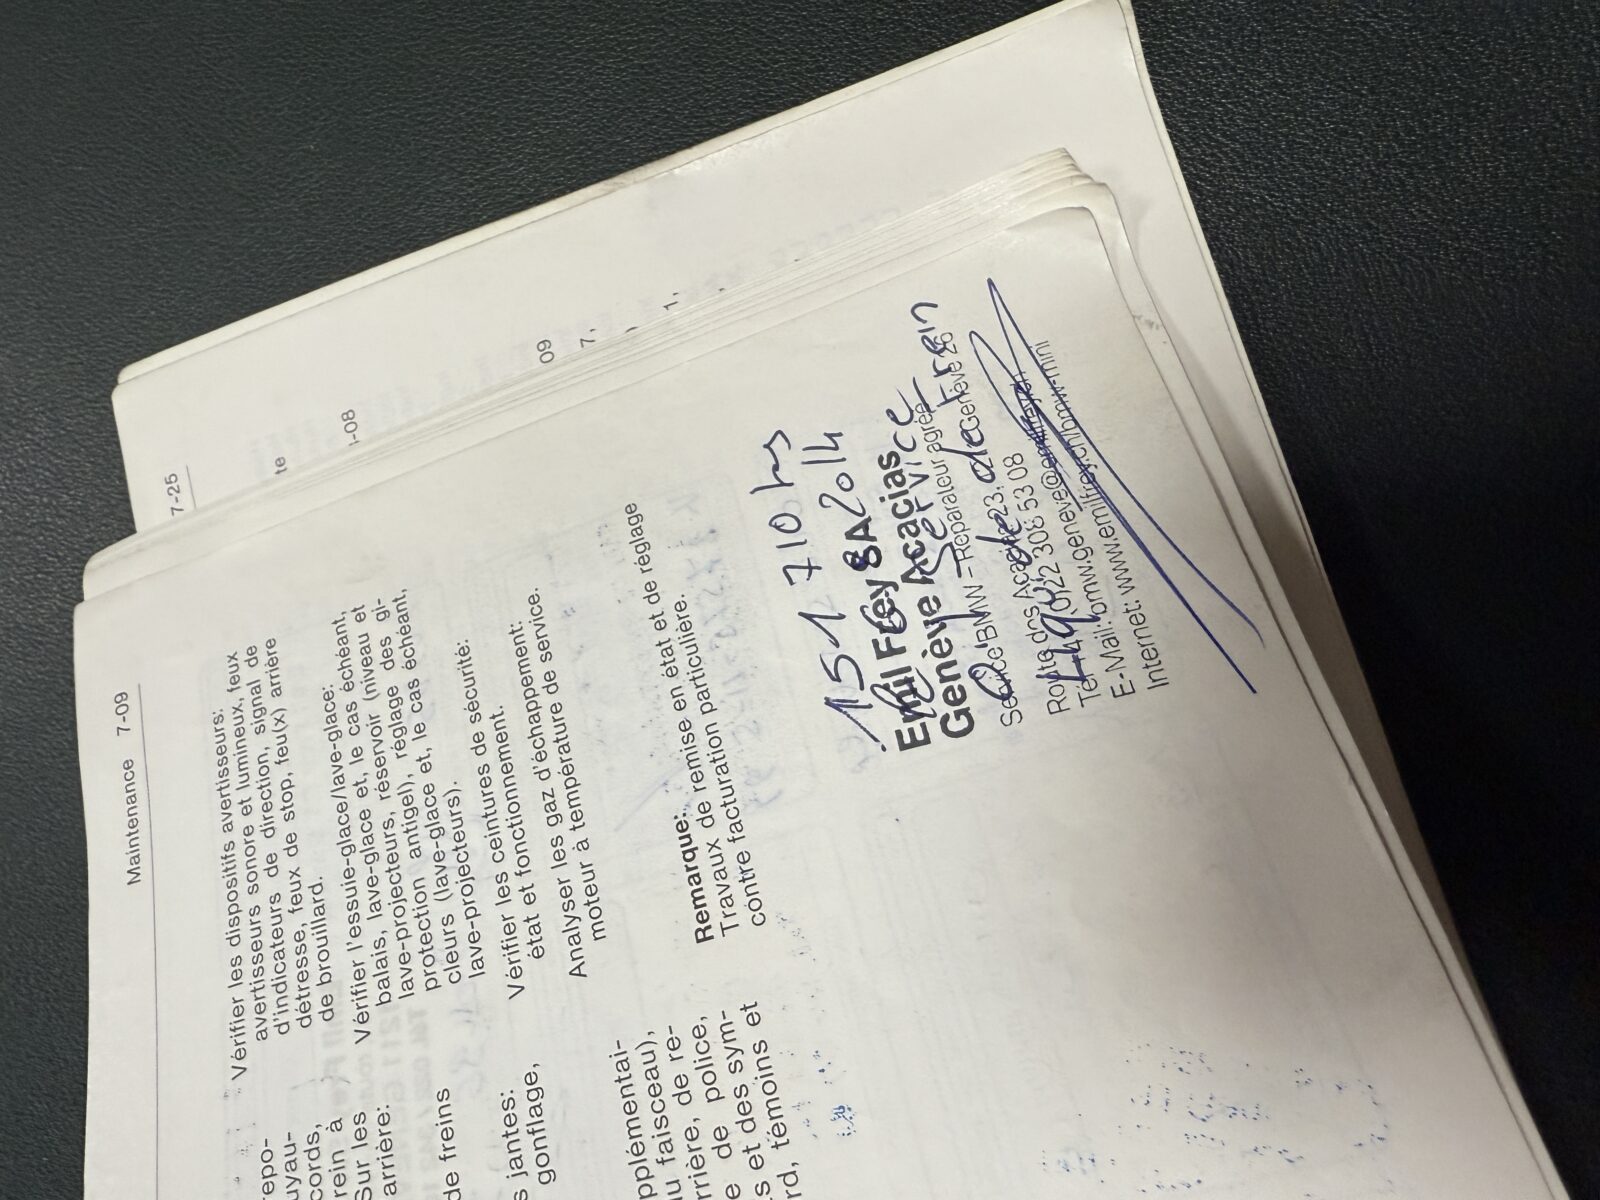 Maintenance 7-09
Vérifier les dispositifs avertisseurs:
avertisseurs sonore et lumineux, feux
d'indicateurs de direction, signal de
détresse, feux de stop, feu(x) arrière
de brouillard.
Vérifier l'essuie-glace/lave-glace:
balais, lave-glace et, le cas échéant,
lave-projecteurs, réservoir (niveau et
protection antigel), réglage des gi-
cleurs (lave-glace et, le cas échéant,
lave-projecteurs).
Vérifier les ceintures de sécurité:
état et fonctionnement.
Analyser les gaz d'échappement:
moteur à température de service.
Remarque:
Travaux de remise en état et de réglage
contre facturation particulière.
151 710
2014
Emil Frey SA
Genève Acacias
Service
Service BMW – Réparateur agréé
de frein
Route des Acacias 23, Genève 26
Tél. 022 308 53 08
E-Mail: bmw.geneve@emilfrey.ch
Internet: www.emilfrey.ch/bmw-mini
repo-
uyau-
cords,
rein à
Sur les
arrière:
de freins
s jantes:
gonflage,
pplémentai-
u faisceau),
rrière, de re-
e de police,
s et des sym-
rd, témoins et
7-25
te
1-08
09
7,
1,